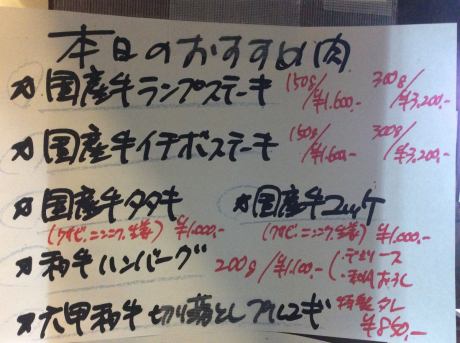 本日のおすすめ肉
国産牛ランプステーキ 150g/¥1,600.- 300g/¥3,200.-
国産牛イチボステーキ 150g/¥1,600.- 300g/¥3,200.-
国産牛タタキ
(ワサビ、ニンニク、生姜) ¥1,000.-
国産牛ユッケ
(ワサビ、ニンニク、生姜) ¥1,000.-
和牛ハンバーグ 200g/¥1,100.-
・デミソース
・和風おろし
六甲和牛 切り落としプルコギ 特製タレ
¥850.-